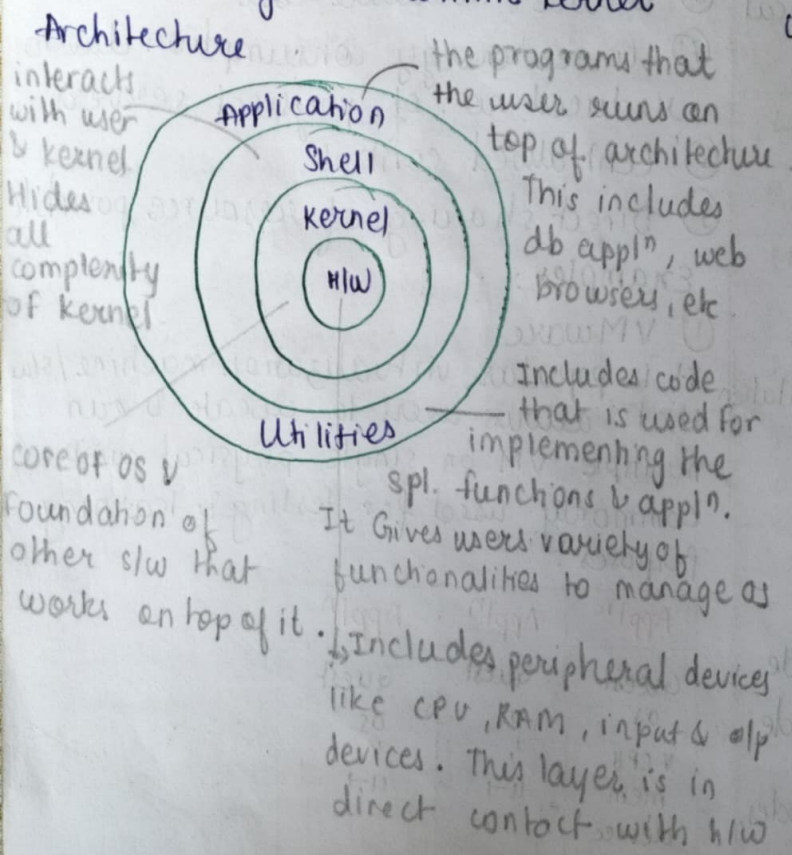 Architecture
interacts
with user
& kernel
Hides
all
complexity
of kernel
Application
Shell
Kernel
H/W
Utilities
the programs that
the user runs on
top of architecture
This includes
db applⁿ, web
browsers, etc
Includes code
that is used for
implementing the
spl. functions & applⁿ.
It Gives users variety of
functionalities to manage as
core of OS &
Foundation of
other s/w that
works on top of it.
↳ Includes peripheral devices
like CPU, RAM, input & o/p
devices. This layer is in
direct contact with h/w